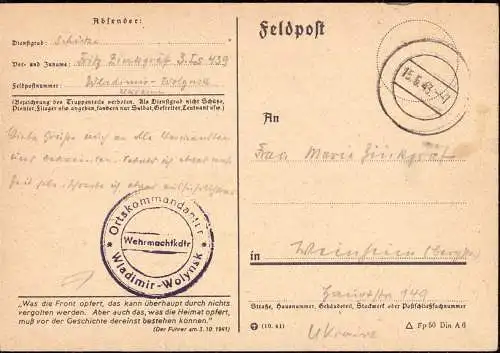 Absender:
Dienstgrad: Schütze
Vor- und Zuname: Fritz Zinkgräf 3. Ls 439
Feldpostnummer: Wladimir-Wolynsk
Ukraine
(Bezeichnung des Truppenteils verboten. Als Dienstgrad nicht Schütze,
Pionier, Flieger usw. angeben, sondern nur Soldat, Gefreiter, Leutnant usw.)
Liebe Grüße an alle Verwandten
und Bekannten. ich etwas mehr
Zeit ich etwas
* Ortskommandantur *
Wehrmachtkdtr
Wladimir-Wolynsk
„Was die Front opfert, das kann überhaupt durch nichts
vergolten werden. Aber auch das, was die Heimat opfert,
muß vor der Geschichte dereinst bestehen können.“
(Der Führer am 3. 10. 1941)
Feldpost
15.6.43
An
Frau Marie Zinkgräf
in Weinheim (Bergstr.)
Hauptstr 149
Straße, Hausnummer, Gebäudeteil, Stockwerk oder Postschließfachnummer
Ukraine
(10. 41) Fp 50 Din A 6